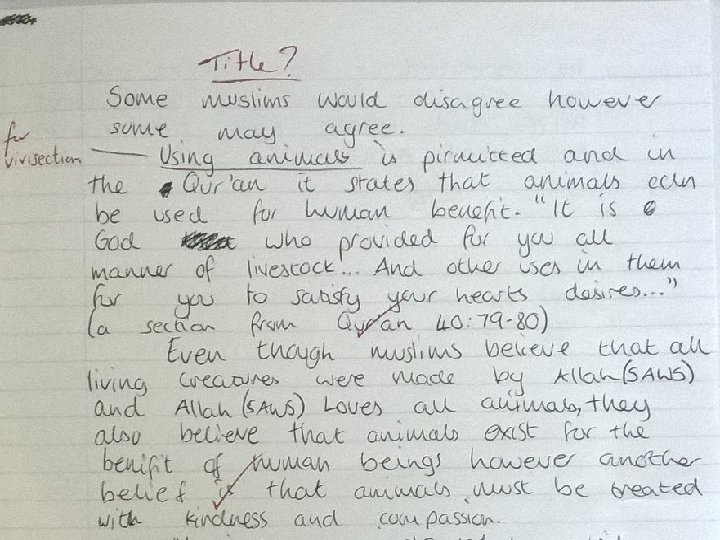 Title?
Some muslims would disagree however
some may agree.
for
vivisection
Using animals is pirmitted and in
the Qur'an it states that animals can
be used for human benefit. "It is
God who provided for you all
manner of livestock... And other uses in them
for you to satisfy your hearts desires..."
(a section from Qur'an 40:79-80)
Even though muslims believe that all
living creatures were made by Allah (SAWS)
and Allah (SAWS) Loves all animals, they
also believe that animals exist for the
benifit of human beings however another
belief is that animals must be treated
with kindness and compassion.